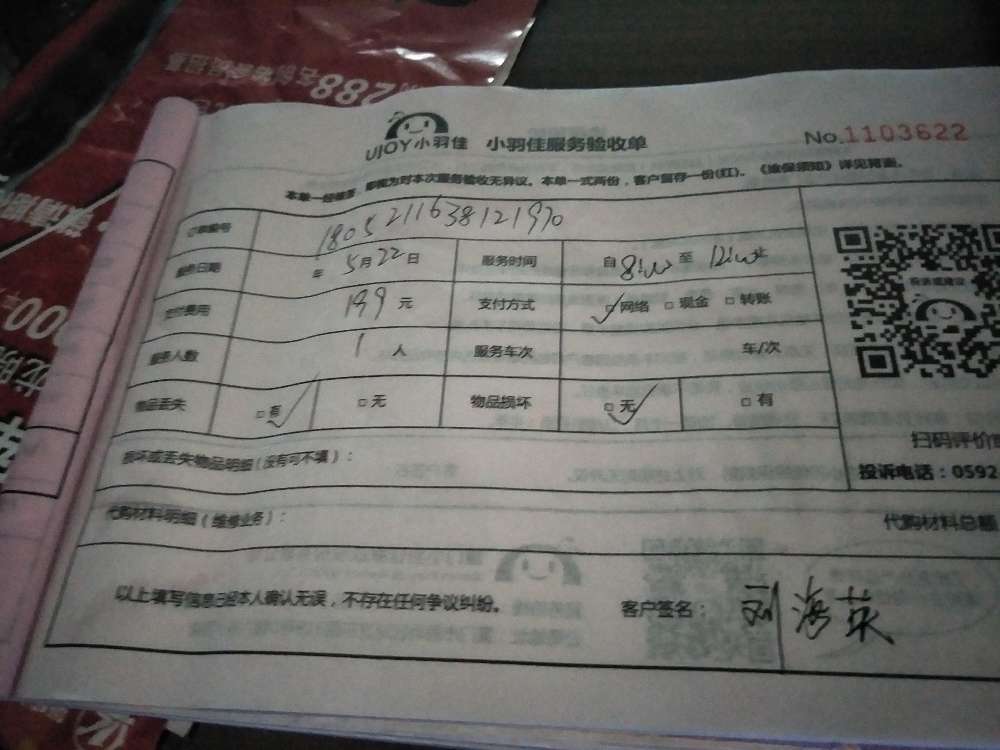 288
UJOY小羽佳 小羽佳服务验收单 No.1103622
本单一经签字，即视为对本次服务验收无异议。本单一式两份，客户留存一份(红)。《维保须知》详见背面。
订单编号 1805211638121970
服务日期 年 5月22日 服务时间 自 8:00 至 12:00
支付费用 199 元 支付方式 网络 现金 转账
服务人数 1 人 服务车次 车/次
物品丢失 有 无 物品损坏 无 有
扫码评价
损坏或丢失物品明细（没有可不填）：
投诉电话：0592
代购材料明细（维修业务）：
代购材料总额
以上填写信息已经本人确认无误，不存在任何争议纠纷。 客户签名：刘海英